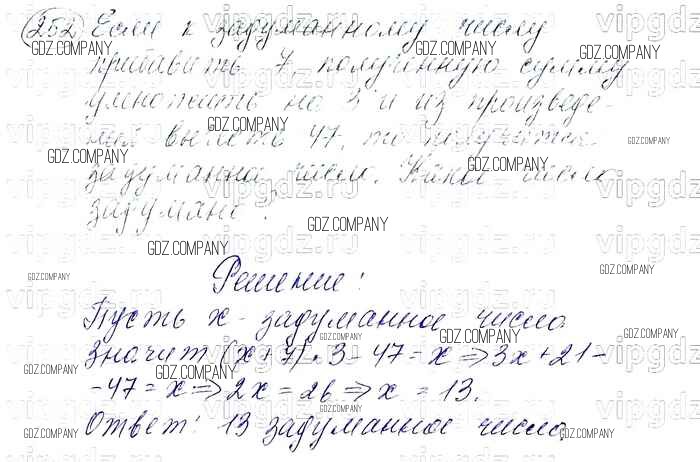 252 Если к задуманному числу
прибавить 7 полученную сумму
умножить на 3 и из произведе-
ния вычесть 47, то получится
задуманное число. Какое число
задумано?
Решение:
Пусть x - задуманное число.
Значит (x+7)·3-47=x⇒3x+21-
-47=x⇒2x=26⇒x=13.
Ответ: 13 задуманное число.